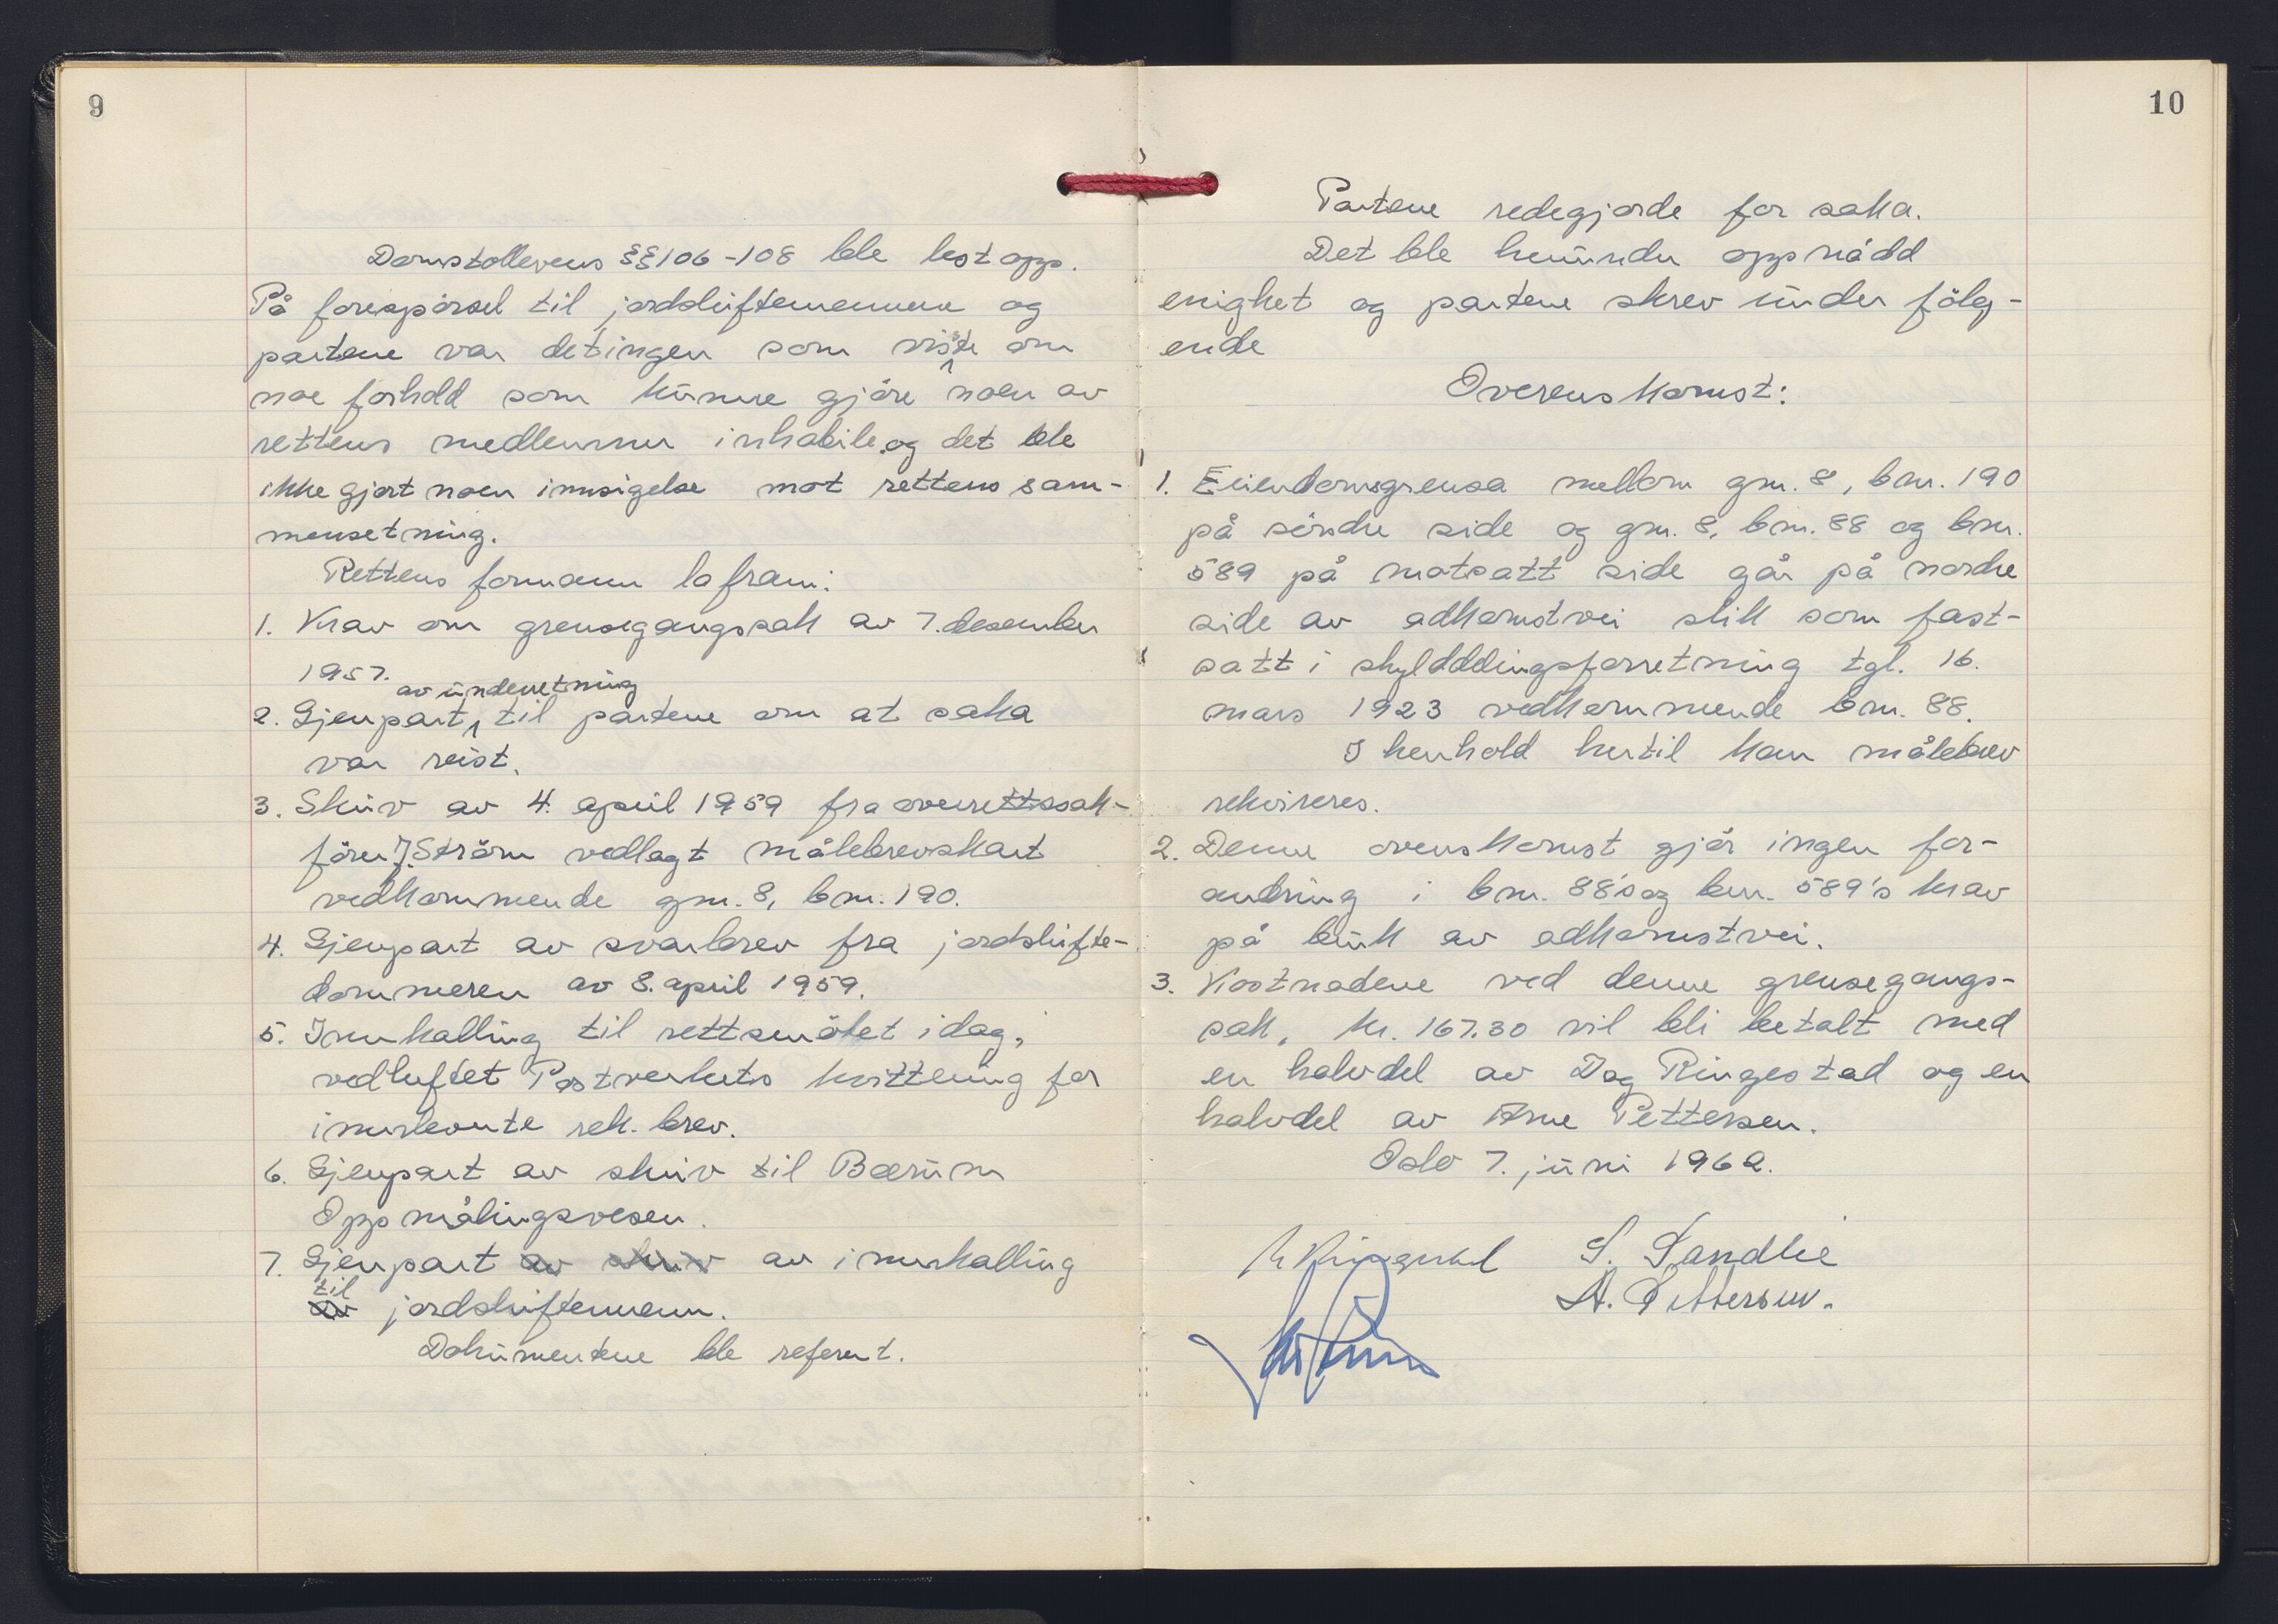 9
Domstollovens §§ 106 - 108 ble lest opp.
På forespörsel til jordskiftemennene og
partene var det ingen som visste om
noe forhold som kunne gjöre noen av
rettens medlemmer inhabile og det ble
ikke gjort noen innsigelse mot rettens sam-
mensetning.
Rettens formann la fram:
1. Krav om grensegangssak av 7. desember
1957.
av underretning
2. Gjenpart til partene om at saka
var reist.
3. Skriv av 4. april 1959 fra overrettssak-
förer J. Ström vedlagt målebrevskart
vedkommende gnr. 8, bnr. 190.
4. Gjenpart av svarbrev fra jordskifte-
dommeren av 8. april 1959.
5. Innkalling til rettsmötet i dag,
vedheftet Postverkets kvittering for
innleverte rek. brev.
6. Gjenpart av skriv til Bærum
Oppmålingsvesen.
7. Gjenpart av skriv av innkalling
til
av jordskiftemenn.
Dokumentene ble referert.
10
Partene redegjorde for saka.
Det ble herunder oppnådd
enighet og partene skrev under fölg-
ende
Overenskomst:
1. Eiendomsgrensa mellom gnr. 8, bnr. 190
på söndre side og gnr. 8, bnr. 88 og bnr.
589 på motsatt side går på nordre
side av adkomstvei slik som fast-
satt i skyldddlingsforretning tgl. 16.
mars 1923 vedkommende bnr. 88.
I henhold hertil kan målebrev
rekvireres.
2. Denne ovenskomst gjör ingen for-
andring i bnr. 88's og bnr. 589's krav
på bruk av adkomstvei.
3. Kostnadene ved denne grensegangs-
sak, kr. 167.30 vil bli betalt med
en halvdel av Dag Ringestad og en
halvdel av Arne Pettersen.
Oslo 7. juni 1962.
S. Sandlie
A. Pettersen.